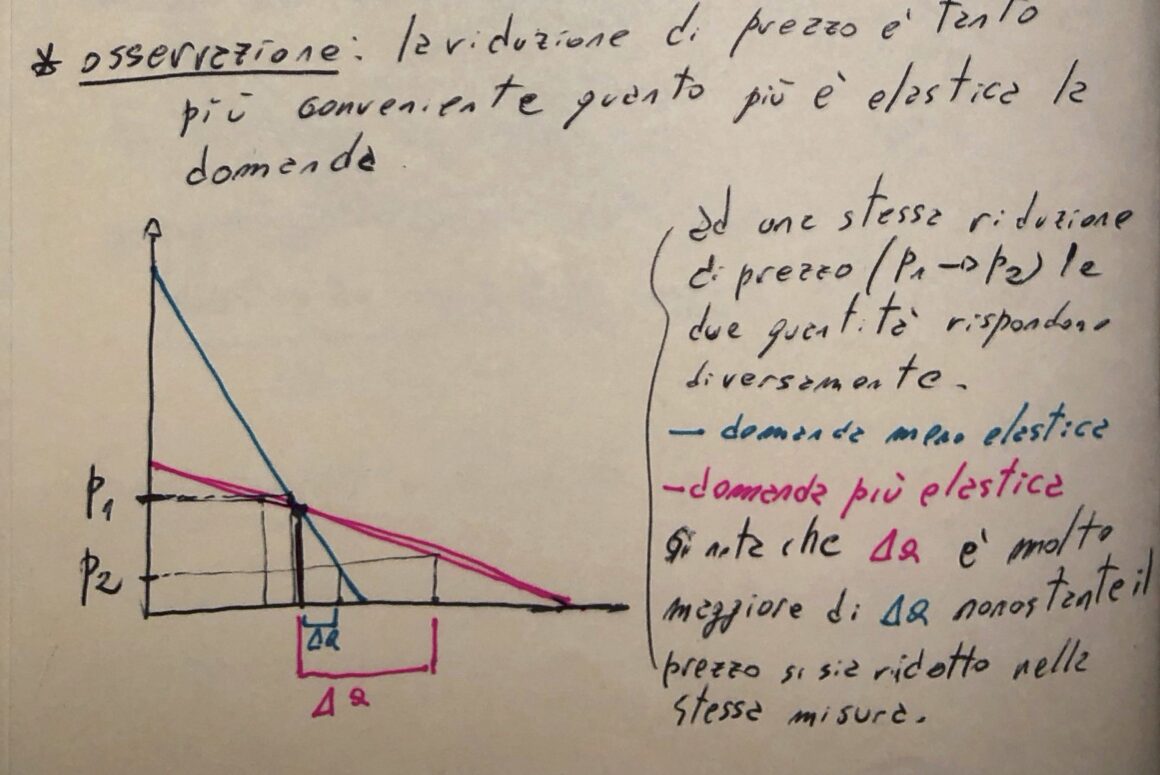 * osservazione: la riduzione di prezzo e' tanto
più conveniente quanto più è elastica la
domanda.
ad una stessa riduzione
di prezzo (P1 → P2) le
due quantità rispondono
diversamente.
- domanda meno elastica
- domanda più elastica
Si nota che ΔQ e' molto
maggiore di ΔQ nonostante il
prezzo si sia ridotto nella
stessa misura.
P1
P2
ΔQ
ΔQ